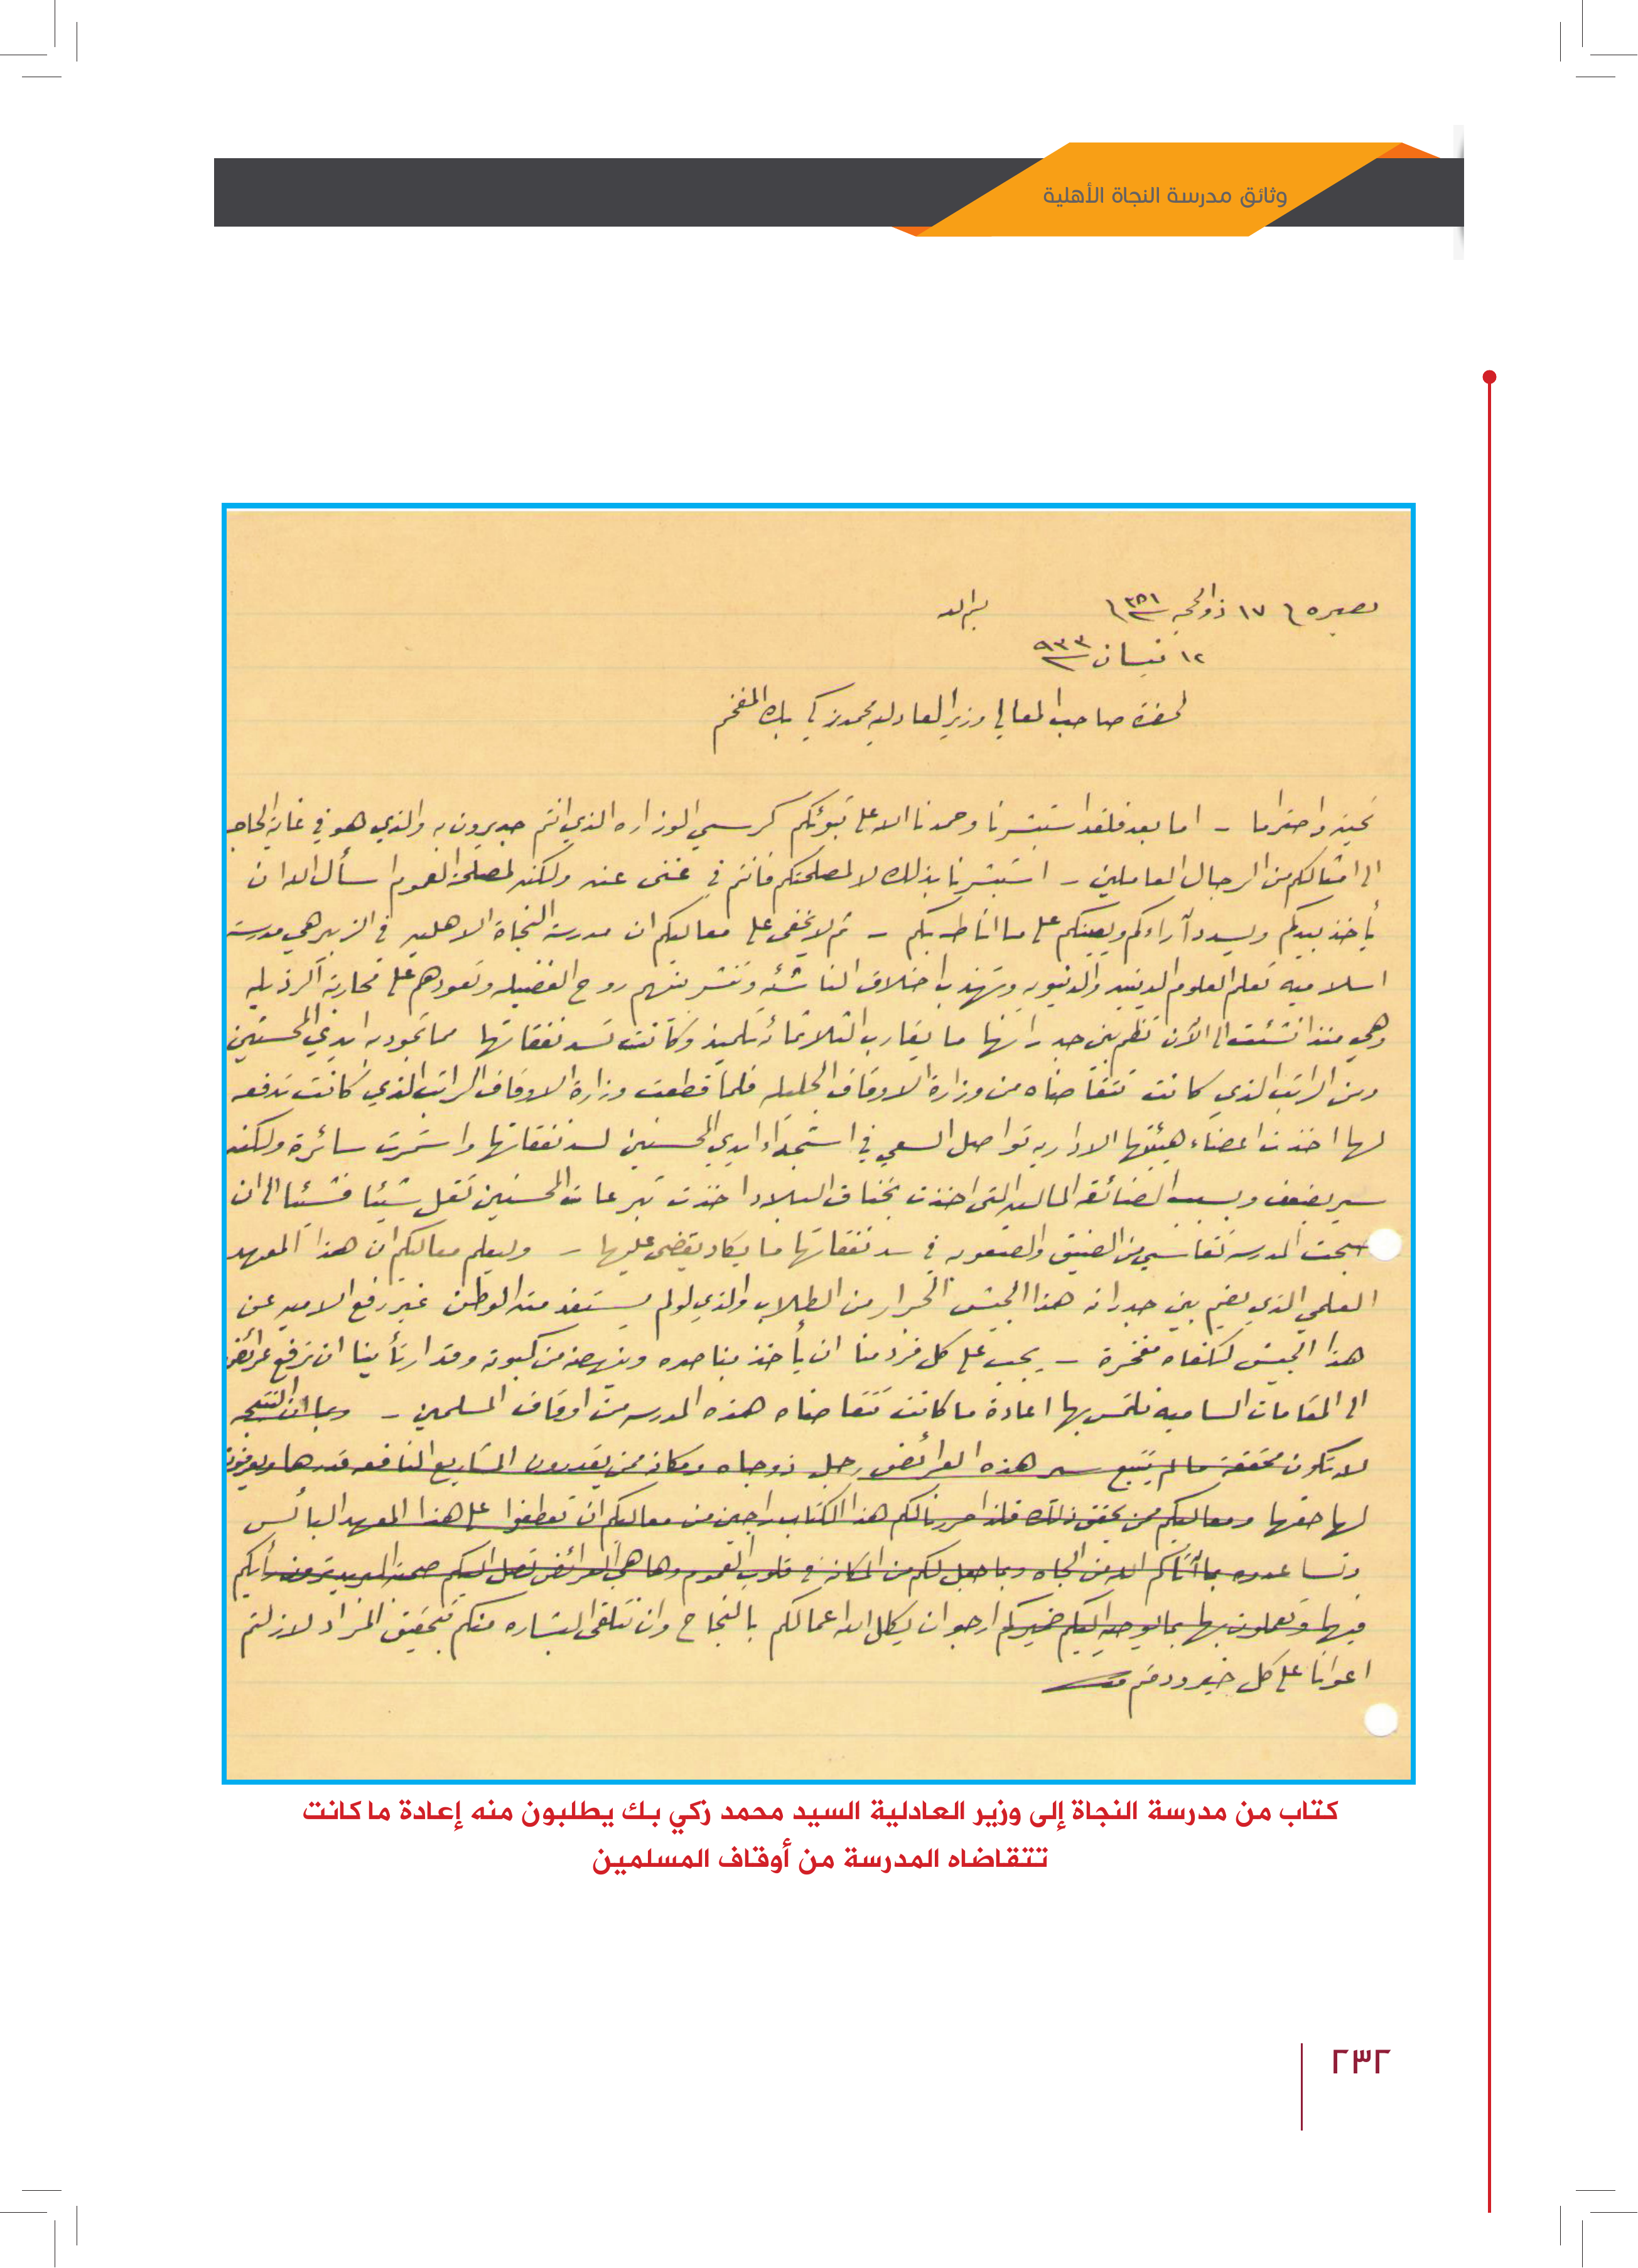 وثائق مدرسة النجاة الأهلية
بصره ١٧ ذو الحجه ٣٥١ بسم الله
١٢ نيسان ٩٣٣
لحضرة صاحب المعالي وزير العادليه محمد زكي بك المفخم
تحية واحتراما - اما بعد فلقد استبشرنا وحمدنا الله على تبوئكم كرسي الوزاره الذي انتم جديرون به والذي هو في غاية الحاجه
الى امثالكم من الرجال العاملين - استبشرنا بذلك لا لمصلحتكم فانتم في غنى عنه ولكنه لمصلحة العموم اسأل الله ان
يأخذ بيدكم ويسدد آراءكم ويعينكم على ما اناطه بكم - ثم لا يخفى على معاليكم ان مدرسة النجاة الاهليه في الزبير هي مدرسة
اسلاميه تعلم العلوم الدينيه والدنيويه وتهذب اخلاق الناشئه وتنشر بينهم روح الفضيله وتعودهم على محاربة الرذيله
وهي منذ انشئت الى الآن تظم بين جدرانها ما يقارب الثلاثمائة تلميذ وكانت تسد نفقاتها مما تجود به ايدي المحسنين
ومن الراتب الذي كانت تتقاضاه من وزارة الاوقاف الجليله فلما قطعت وزارة الاوقاف الراتب الذي كانت تدفعه
لها اخذت اعضاء هيئتها الاداريه تواصل السعي في استجداء ايدي المحسنين لسد نفقاتها واستمرت سائرة ولكنه
سير بضعف وبسبب الضائقه الماليه التي اخذت بخناق البلاد اخذت تبرعات المحسنين تقل شيئا فشيئا الى ان
صبحت المدرسه تقاسي من الضيق والصعوبه في سد نفقاتها ما يكاد يقضي عليها - وليعلم معاليكم ان هذا المعهد
العلمي الذي يضم بين جدرانه هذا الجيش الجرار من الطلاب والذي لو لم يستفد منه الوطن غير رفع الاميه عن
هذا الجيش لكفاه مفخرة - يجب على كل فرد منا ان يأخذ بناصره وينهضه من كبوته وقد ارتأينا ان نرفع عرائض
الى المقامات الساميه نلتمس بها اعادة ما كانت تتقاضاه هذه المدرسه من اوقاف المسلمين - وبما ان النتيجه
لا تكون محققة ما لم يتتبع سير هذه العرائض رجل ذو جاه ومكانة ممن يقدرون المشاريع النافعه قدرها ويعرفون
لها حقها ومعاليكم ممن يحقق ذلك فلذا حررنا لكم هذا الكتاب راجين من معاليكم ان تعطفوا على هذا المعهد البائس
وتساعدوه بما آتاكم الله من الجاه وبما جعل لكم من المكانة في قلوب العموم وها هي العرائض تصل اليكم رأيكم
فيها وتعملون بها بما يوحيه اليكم ضميركم ارجو ان يكلل الله اعمالكم بالنجاح وان نتلقى البشاره منكم بتحقيق المراد لازلتم
اعوانا على كل خير ودمتم
كتاب من مدرسة النجاة إلى وزير العادلية السيد محمد زكي بك يطلبون منه إعادة ما كانت
تتقاضاه المدرسة من أوقاف المسلمين
٢٣٢